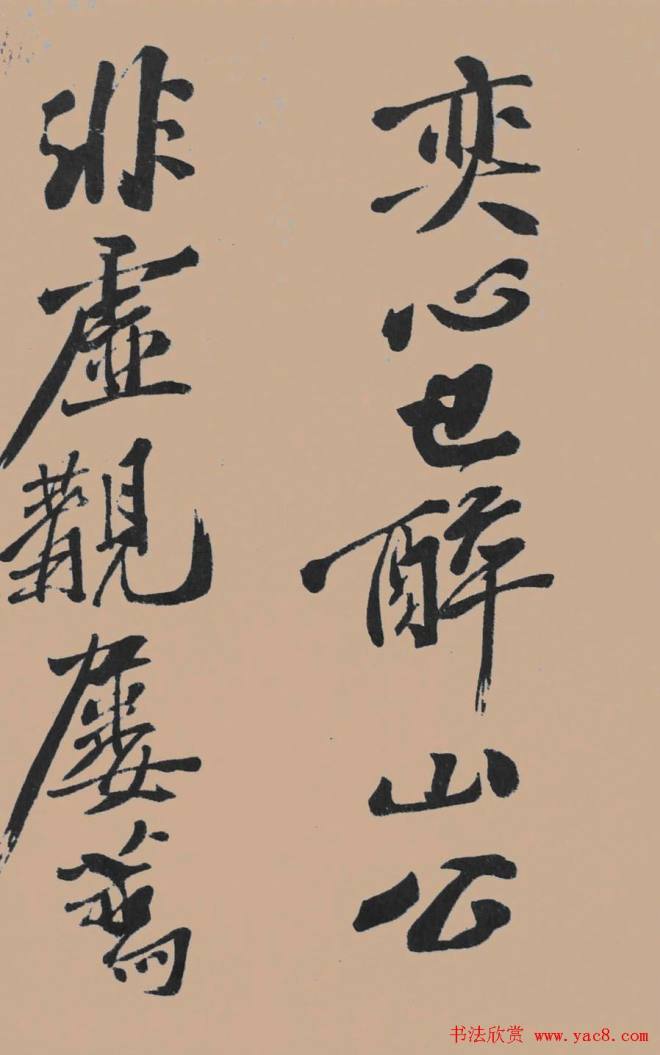 奕心已醉山公
非虚觀屢
书法欣赏 www.yac8.com